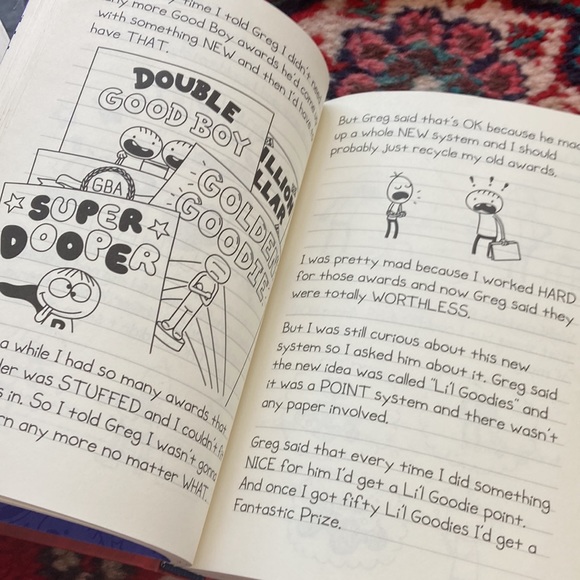 time I told Greg I didn't
more Good Boy awards he'd
with something NEW and then I'd
have THAT.
DOUBLE
GOOD BOY
GBA
GOLDEN
GOODIE
SUPER
DOOPER
a while I had so many awards that
was STUFFED and I couldn't
in. So I told Greg I wasn't gonna
any more no matter WHAT.
But Greg said that's OK because he
up a whole NEW system and I should
probably just recycle my old awards.
I was pretty mad because I worked HARD
for those awards and now Greg said they
were totally WORTHLESS.
But I was still curious about this new
system so I asked him about it. Greg said
the new idea was called "Li'l Goodies" and
it was a POINT system and there wasn't
any paper involved.
Greg said that every time I did something
NICE for him I'd get a Li'l Goodie point.
And once I got fifty Li'l Goodies I'd get a
Fantastic Prize.